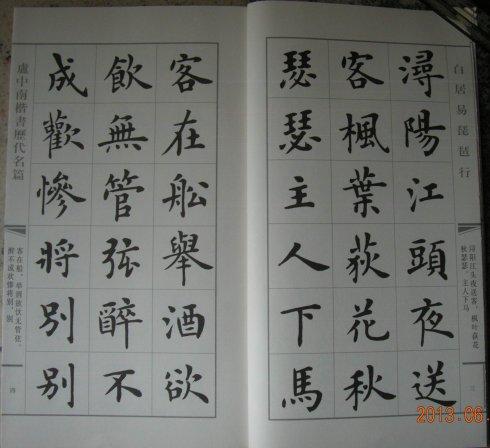 白居易琵琶行
浔阳江头夜送客，枫叶荻花
秋瑟瑟。主人下马
三
潯陽江頭夜送
客楓葉荻花秋
瑟瑟主人下馬
客在船舉酒欲
飲無管弦醉不
成歡慘將別別
盧中南楷書歷代名篇
客在船，举酒欲饮无管弦。
醉不成欢惨将别，别
四
2013.06.